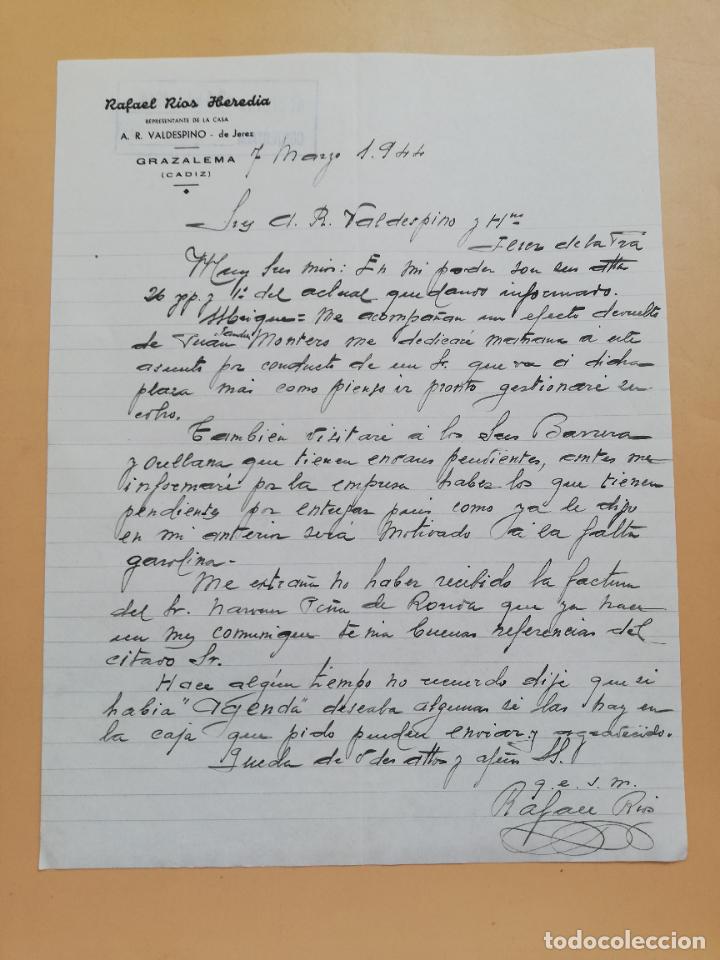 Rafael Rios Heredia
REPRESENTANTE DE LA CASA
A. R. VALDESPINO - de Jerez
GRAZALEMA
(CADIZ)
7 Marzo 1.944
Sres A. R. Valdespino y Hno
Jerez de la Fra
Muy Sres mios: En mi poder son sus attas
26 pp. y 1º del actual quedando informado.
Me acompañan un efecto devuelto
de Juan Montero me dedicaré mañana á este
asunto por conducto de un Sr. que va á dicha
plaza mas como pienso ir pronto gestionaré su
cobro.
También visitaré á los Sres Barrera
y Orellana que tienen envases pendientes, antes me
informaré por la empresa haber los que tienen
pendientes por entregar pues como ya le dije
en mi anterior será motivado á la falta
gasolina.
Me extraña no haber recibido la factura
del Sr. Peña de Ronda que ya hace
un mes comuniqué tenia buenas referencias del
citado Sr.
Hace algún tiempo no recuerdo dije que si
habia "agenda" deseaba algunas si las hay en
la caja que pido pueden enviar y agradecido.
Queda de Vdes attos y afmo SS.
q. e. s. m.
Rafael Rios
todocoleccion